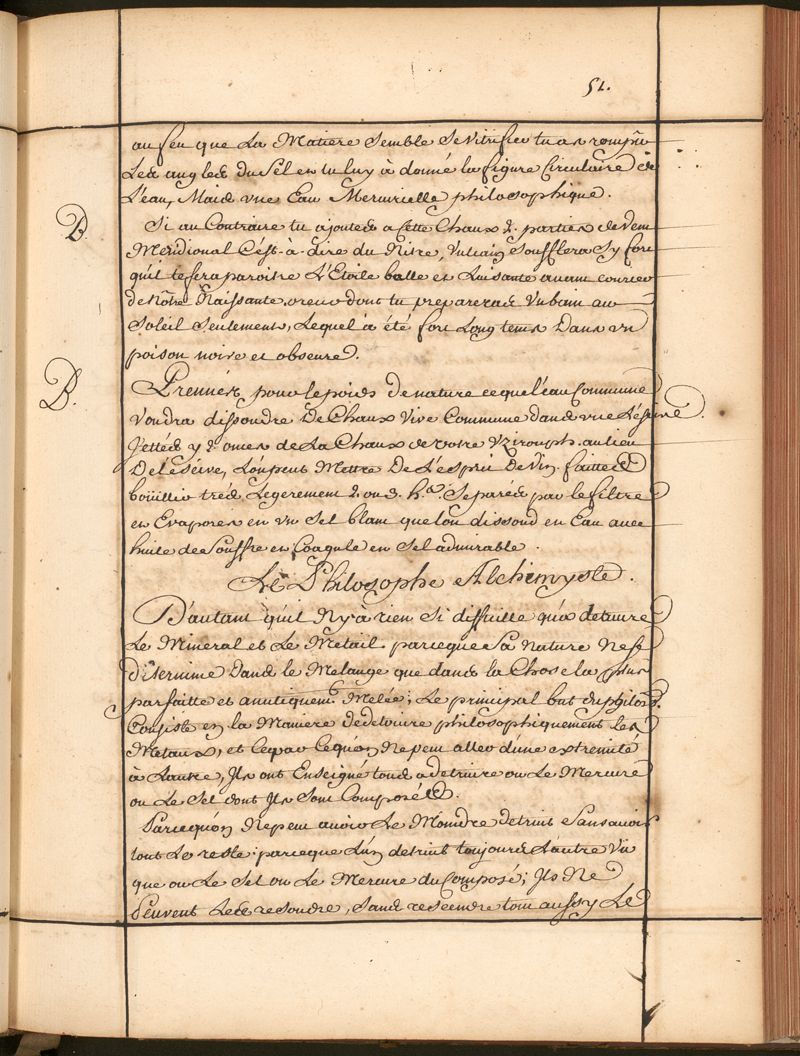 51.
au feu que La Matiere Semble Se Vitrifier tu as rompu
Les angles du Sel en tu luy à donné la figure Circulaire de
L'eau, Mais vne Eau Mercurielle philosophique.
D.
Si au Contraire tu ajoutes a Cette Chaux 2. parties de Vent
Meridional C'est-à-dire du Nitre, Vulcain Soufflera Sy fort
qu'il te fera paroitre L'Etoile belle et Luisante auant courier
de Nôtre Naissante, donc tu prepareras Vn bain au
Soleil Seulement, Lequel à été fort Long tems Dans vn
poison noire et obscure.
B.
Prennés pour le poids de nature ce que l'eau Commune
Voudra dissoudre De Chaux Vive Commune dans vne Léseive
Jettes y 2. onces de La Chaux de votre au lieu
De Léseive, L'on peut Mettre De L'esprit de Vin. faittes
boüillir trés Legerement 2. ou 3. h.es Separés par le filtre
en Evaporer en vn Sel blanc que l'on dissoud en Eau auec
huile de Souffre en Coagule en Sel admirable.
Le Philosophe Alchimyste.
D'autant qu'il N'y à rien Si difficille qu'a detruire
Le Mineral et Le Metail parceque Sa Nature Nest
déterminé Dans le Melange que dans la Chose la plus
parfaitte et Melée; Le principal but des philos.
Consiste en la Maniere de detruire philosophiquement Les
Metaux, et Lequ'on Ne peut aller d'une extremité
à Lautre, Ils ont Enseigné tous a detruire ou Le Mercure
ou Le Sel dont Ils Sont Composés.
Parcequ'on Ne peut auoir Le Moindre detruit Sans auoir
tout Le reste: parceque L'un detruit toujours L'autre Vu
que ou Le Sel ou Le Mercure du Composé; Ils Ne
Peuvent Les resoudre, Sans tout aussy Le